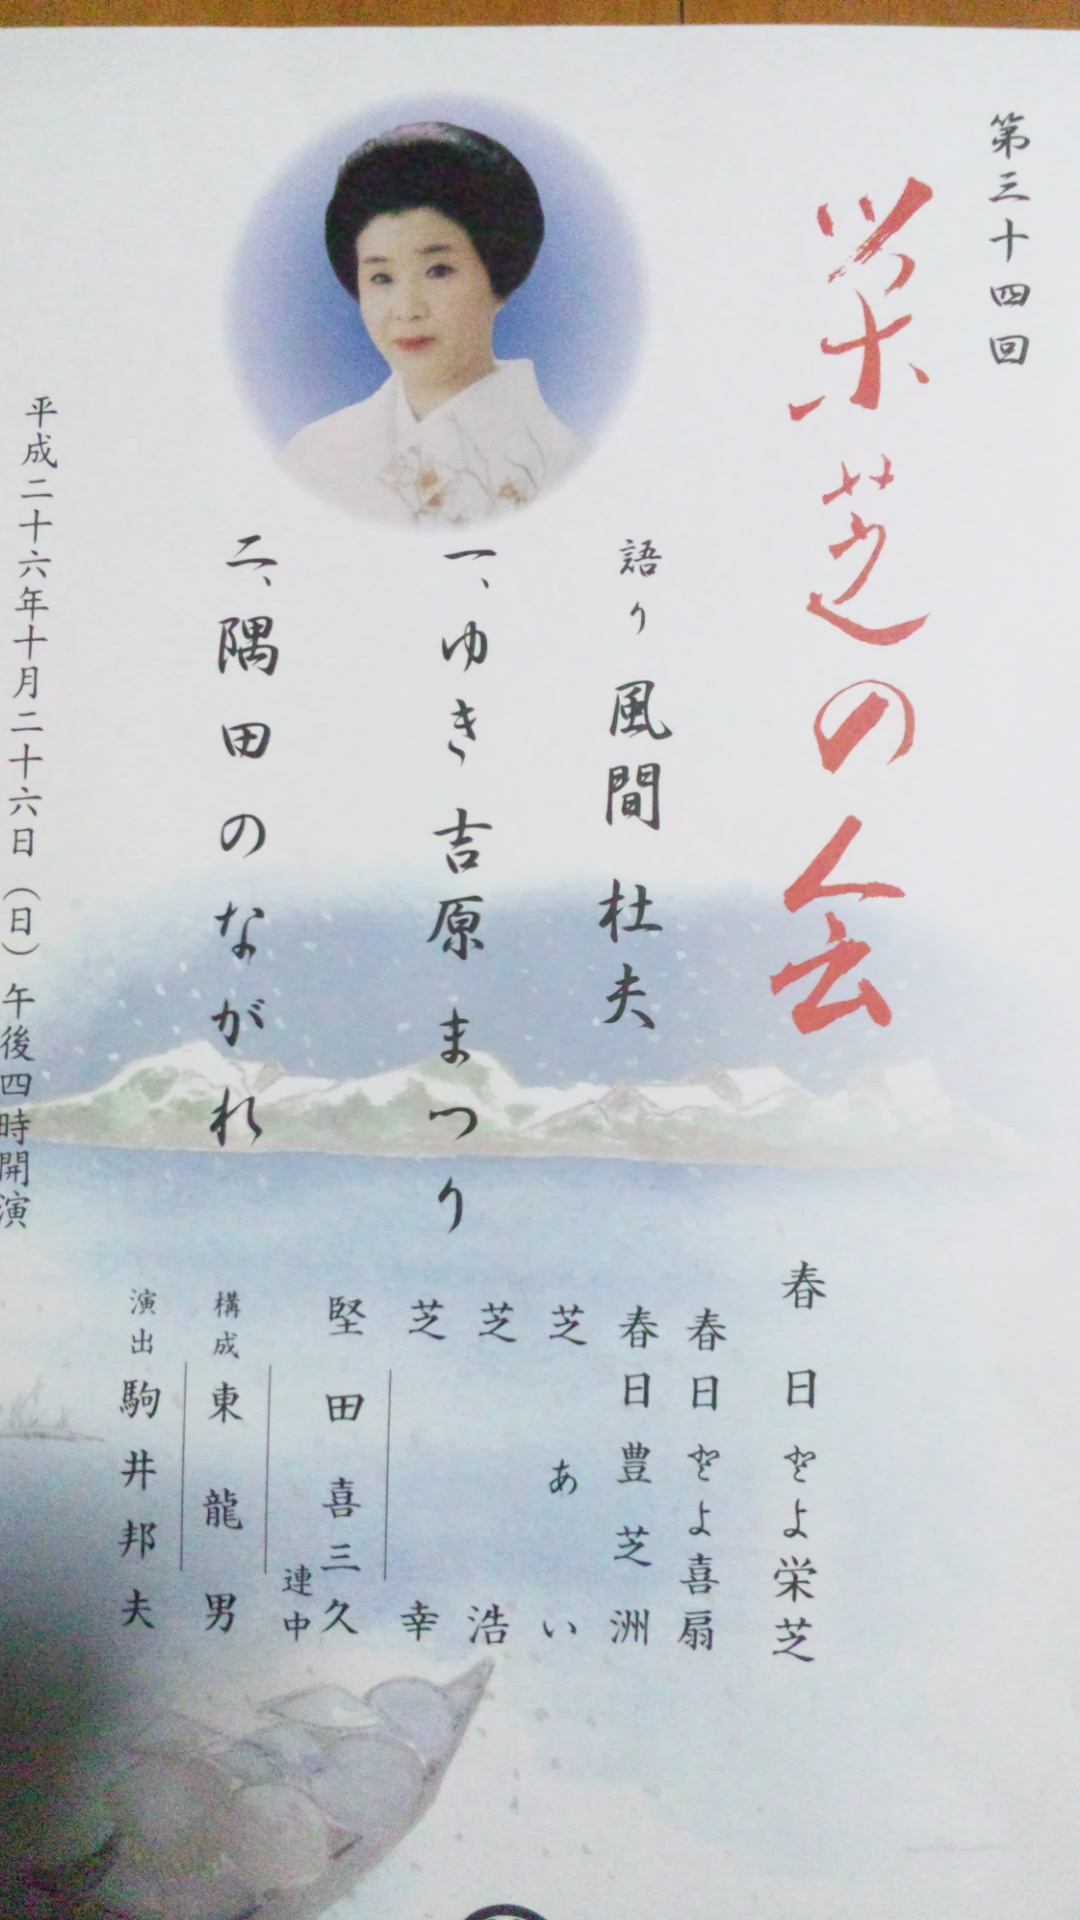 第三十四回
栄芝の会
語り 風間杜夫
一、ゆき吉原まつり
二、隅田のながれ
春日とよ栄芝
春日とよ喜扇
春日豊芝洲
芝あい
芝浩
芝幸
堅田喜三久
連中
構成 東龍男
演出 駒井邦夫
平成二十六年十月二十六日（日）午後四時開演